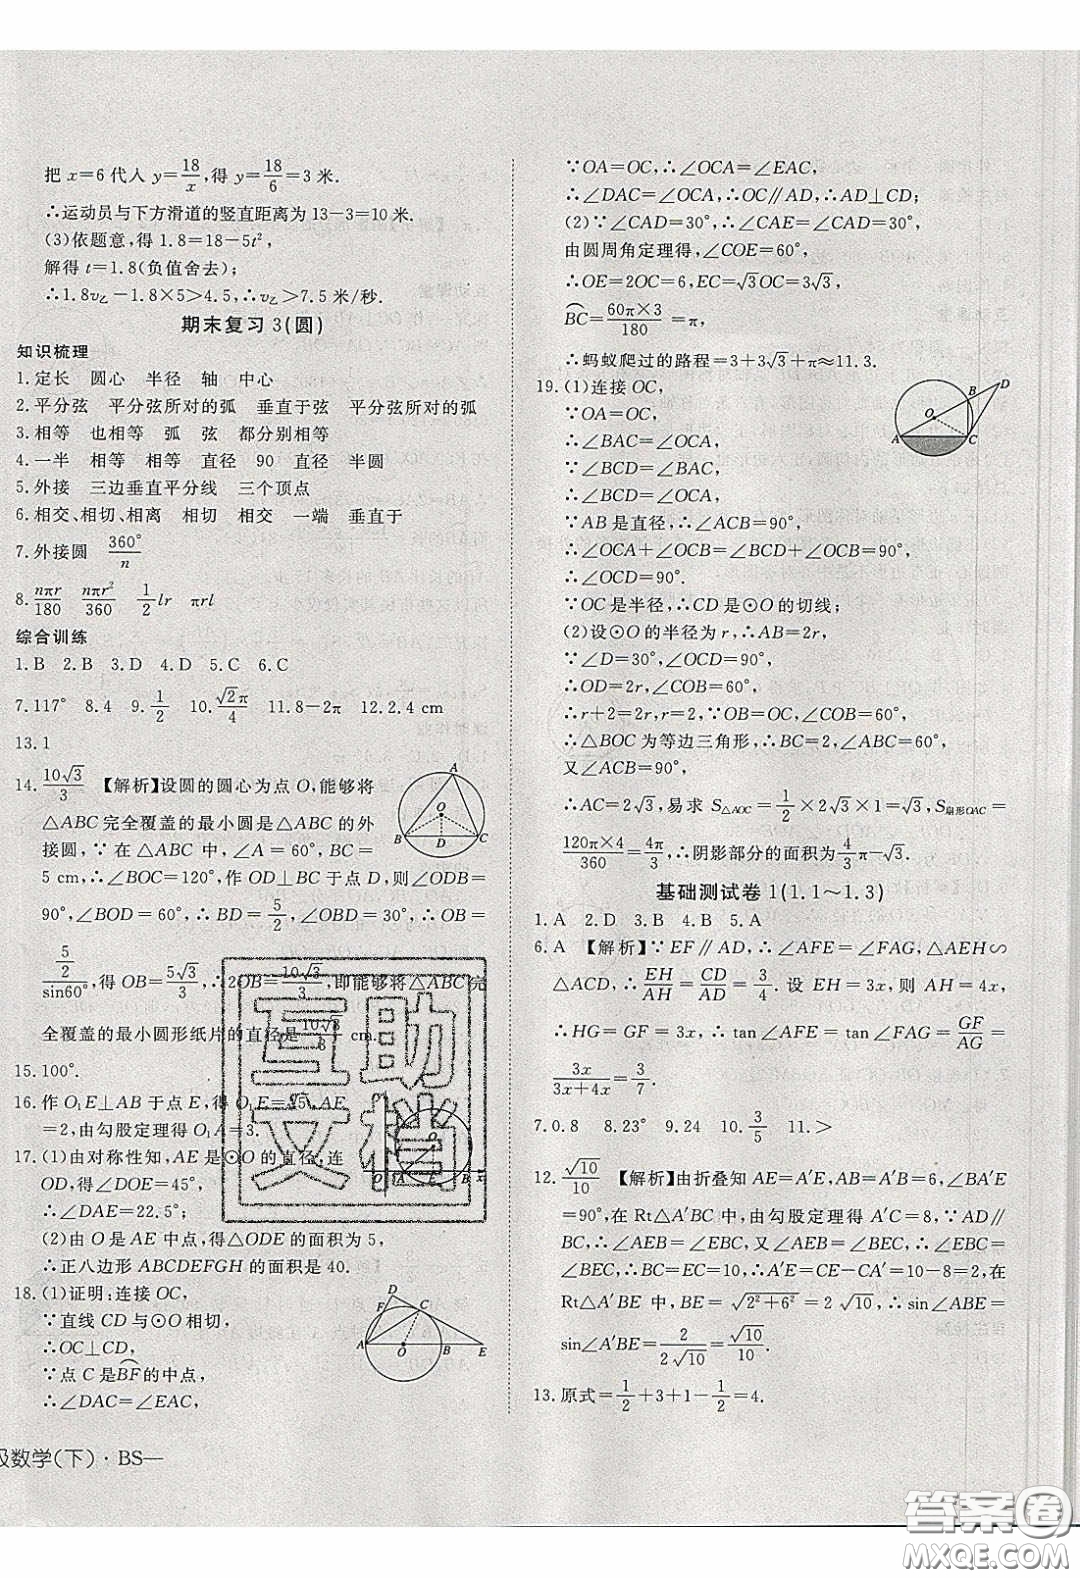 把 x=6 代人 y=18/x,得 y=18/6=3 米.
∴运动员与下方滑道的竖直距离为 13-3=10 米.
(3)依题意,得 1.8=18-5t²,
解得 t=1.8(负值舍去);
∴1.8v乙-1.8×5>4.5,∴v乙>7.5 米/秒.
期末复习 3(圆)
知识梳理
1.定长 圆心 半径 轴 中心
2.平分弦 平分弦所对的弧 垂直于弦 平分弦所对的弧
3.相等 也相等 弧 弦 都分别相等
4.一半 相等 相等 直径 90 直径 半圆
5.外接 三边垂直平分线 三个顶点
6.相交、相切、相离 相切 相交 一端 垂直于
7.外接圆 360°/n
8.nπr/180 nπr²/360 1/2 lr πrl
综合训练
1.B 2.B 3.D 4.D 5.C 6.C
7.117° 8.4 9.1/2 10.√2π/4 11.8-2π 12.2.4 cm
13.1
14.10√3/3 【解析】设圆的圆心为点 O,能够将
△ABC 完全覆盖的最小圆是△ABC 的外
接圆,∵在△ABC 中,∠A=60°,BC=
5 cm,∴∠BOC=120°,作 OD⊥BC 于点 D,则∠ODB=
90°,∠BOD=60°,∴BD=5/2,∠OBD=30°,∴OB=
(5/2)/sin60°,得 OB=5√3/3,∴2OB=10√3/3,即能够将△ABC 完
全覆盖的最小圆形纸片的直径是 10√3/3 cm.
15.100°.
16.作 O₁E⊥AB 于点 E,得 O₁E=√5,AE
=2,由勾股定理得 O₁A=3.
17.(1)由对称性知,AE 是⊙O 的直径,连
OD,得∠DOE=45°,
∴∠DAE=22.5°;
(2)由 O 是 AE 中点,得△ODE 的面积为 5,
∴正八边形 ABCDEFGH 的面积是 40.
18.(1)证明:连接 OC,
∵直线 CD 与⊙O 相切,
∴OC⊥CD,
∵点 C 是B͡F的中点,
∴∠DAC=∠EAC,
A
O
B D C
O A E B x
D
F C
A O B E
∵OA=OC,∴∠OCA=∠EAC,
∴∠DAC=∠OCA,∴OC∥AD,∴AD⊥CD.
(2)∵∠CAD=30°,∴∠CAE=∠CAD=30°,
由圆周角定理得,∠COE=60°,
∴OE=2OC=6,EC=√3OC=3√3,
B͡C=60π×3/180=π,
∴蚂蚁爬过的路程=3+3√3+π≈11.3.
19.(1)连接 OC,
∵OA=OC,
∴∠BAC=∠OCA,
∵∠BCD=∠BAC,
∴∠BCD=∠OCA,
∵AB 是直径,∴∠ACB=90°,
∴∠OCA+∠OCB=∠BCD+∠OCB=90°,
∴∠OCD=90°.
∵OC 是半径,∴CD 是⊙O 的切线;
(2)设⊙O 的半径为 r,∴AB=2r,
∵∠D=30°,∠OCD=90°,
∴OD=2r,∠COB=60°,
∴r+2=2r,∴r=2,∵OB=OC,∠COB=60°,
∴△BOC 为等边三角形,∴BC=2,∠COB=60°,
又∠ACB=90°,
∴AC=2√3,易求 S△AOC=1/2×2√3×1=√3,S扇形OAC=
120π×4/360=4π/3,∴阴影部分的面积为4/3π-√3.
D
B
O
A C
基础测试卷 1(1.1~1.3)
1.A 2.D 3.B 4.B 5.A
6.A 【解析】∵EF∥AD,∴∠AFE=∠FAG,△AEH∽
△ACD,∴EH/AH=CD/AD=3/4. 设 EH=3x,则 AH=4x,
∴HG=GF=3x,∴tan∠AFE=tan∠FAG=GF/AG=
3x/(3x+4x)=3/7.
7.0.8 8.23° 9.24 10.3/5 11.>
12.√10/10 【解析】由折叠知 AE=A′E,A′B=AB=6,∠BA′E
=90°,在 Rt△A′BC 中,由勾股定理得 A′C=8,∵AD∥
BC,∴∠DEC=∠ECB,又∠A′EB=∠AEB,∴∠EBC=
∠BEC,∴BC=CE=10,∴A′E=CE-CA′=10-8=2,在
Rt△A′BE 中,BE=√(2²+6²)=2√10,∴sin∠ABE=
sin∠A′BE=2/(2√10)=√10/10.
13.原式=1/2+3+1-1/2=4.
级数学(下)·BS—
互助
文档
答案卷
MXQE.COM